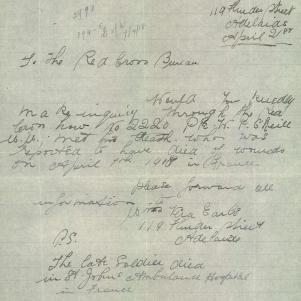 119 Flinders Street
Adelaide
April 21st
To The Red Cross Bureau
Would You kindly
make inquiry through the Red
Cross how No 2220 Pte H. P. O'Neill
met his death who was
reported to have died of wounds
on April 9th 1918 in France
please forward all
information to
Earle
119 Flinders Street
Adelaide
P.S.
The Late Soldier died
in St Johns Ambulance Hospital
in France